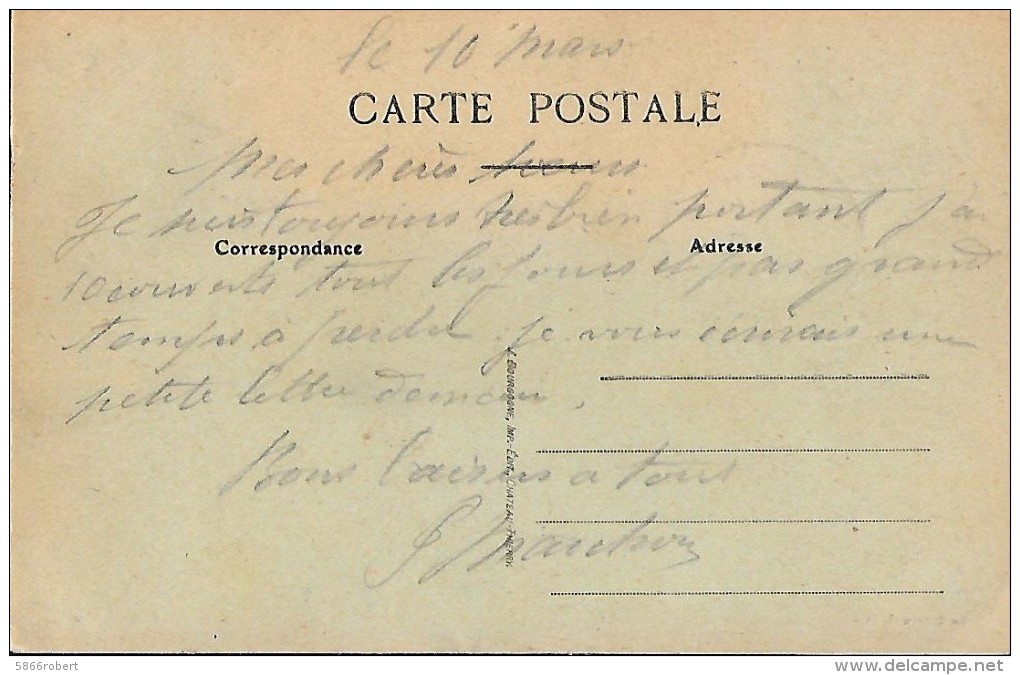 le 10 Mars
CARTE POSTALE
Mes chères
Je suis toujours très bien portant j'ai
Correspondance
Adresse
10 couverts tout les jours et pas grand
temps à perdre. je vous écrirais une
petite lettre demain.
Bons baisers a tous
A. BOURGOGNE, IMP.-ÉDIT., CHATEAU-THIERRY.
5866robert
delcampe.net